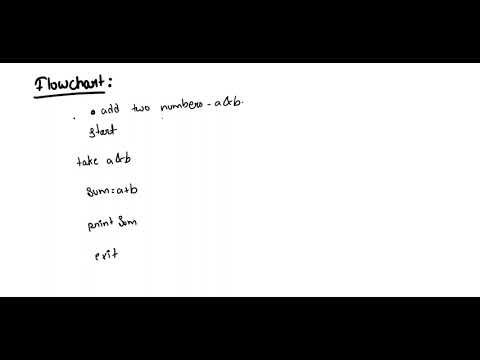 Flowchart:
• add two numbers - a&b.
start
take a&b
sum=a+b
print sum
exit